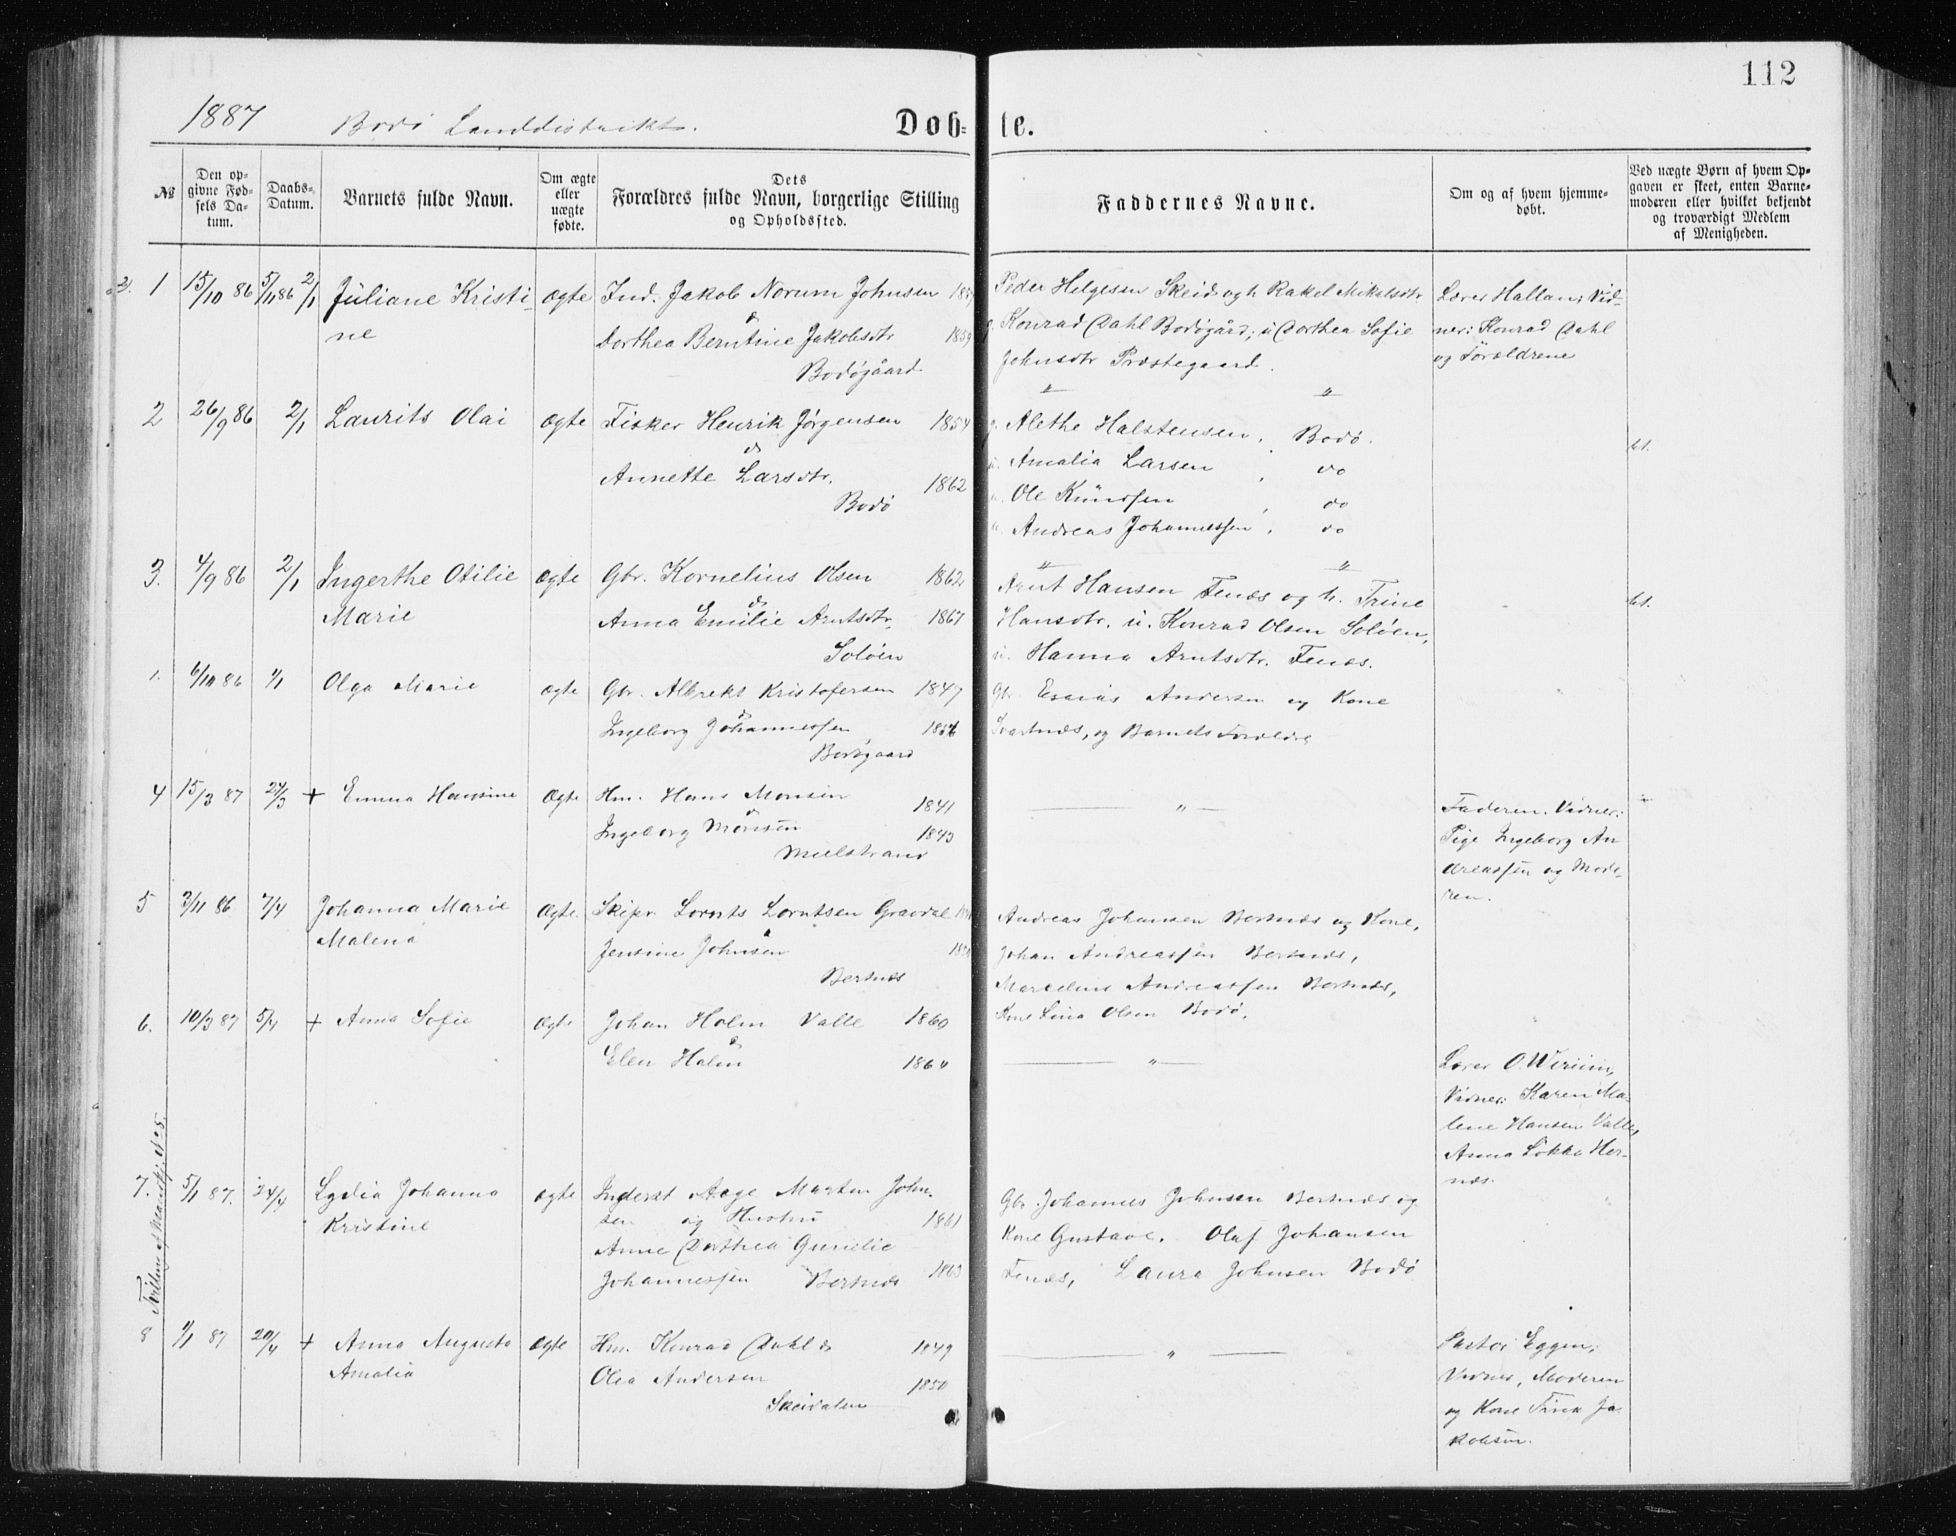 112
1887 Bodø Landdistrikt.
Døb- te.
№
Den op-
givne Fød-
sels Da-
tum.
Daabs-
Datum.
Barnets fulde Navn.
Om ægte
eller
uægte
fødte.
Dets
Forældres fulde Navn, borgerlige Stilling
og Opholdssted.
Faddernes Navne.
Om og af hvem hjemme-
døbt.
Ved uægte Børn af hvem Op-
gaven er skeet, enten Barne-
moderen eller hvilket bekjendt
og troværdigt Medlem
af Menigheden.
1 15/10 86 5/11 86 2/1 Juliane Kristi- ægte Ind. Jakob Norum Johnsen
ne
Dorthea Berntine Jakobsdtr 1859
Bodøgaard
Peder Helgesen Skeid og h Rakel Mikalsdtr
Konrad Dahl Bodøgård; u Dorthea Sofie
Johnsdtr Præstegaard.
Lærer Hallan; Vid-
ner: Konrad Dahl
og Forældrene
2 26/9 86 2/1 Laurits Olai ægte Fisker Henrik Jørgensen 1854
&
Annette Larsdtr. 1862
Bodø
Alethe Halstensen, Bodø.
Amalia Larsen, do
Ole Knudsen, do
Andreas Johannessen, do
3. 4/9 86 2/1 Ingerthe Otilie ægte Gbr. Kornelius Olsen 1862
Marie &
Anna Emilie Arntsdtr. 1867
Soløen
Arnt Hansen Fenæs og h. Trine
Hansdtr. u. Konrad Olsen Soløen,
u. Hanna Arntsdtr. Fenæs.
1. 6/10 86 1/1 Olga Marie ægte Gbr. Albrekt Kristofersen 1847
&
Ingeborg Johannessen
Bodøgaard
Gbr. Esaias Andersen og Kone
Svartnæs, og Barnets Forældre
4 15/3 87 27/3 + Emma Hansine ægte Hm. Hans Monsen 1841
&
Ingeborg Monsen 1843
Mælstrand
"
Faderen. Vidner:
Pige Ingeborg An
dreassen og Mode-
ren.
5 3/11 86 7/4 Johanna Marie ægte. Skipr. Lornts Lorntsen Gravdal
Malena &
Jensine Johnsen
Bertnes
Andreas Johansen Bertnæs og Kone,
Johan Andreassen Bertnæs,
Marselius Andreassen Bertnæs,
Kone Lina Olsen Bodø.
6. 10/3 87 5/4 + Anna Sofie ægte Johan Holm Valle 1860
&
Elen Holm
"
Lærer O. Wirum,
Vidner: Karen Ma-
lene Hansen Valle,
Anna Løkke Her-
næs.
Tvilling af Mandkj. № 5.
7. 5/1 87. 24/4 Lydia Johanna ægte Inderst Aage Martin John-
Kristine sen og Hustru 1861
Anne Dorthea Gurielie
Johannessen Bertnæs 1863
Gbr. Johannes Johnsen Bertnæs og
Kone Gustave. Olaf Johansen
Fenæs, Laura Johnsen Bodø
8 1/1 87 20/4 + Anna Augusta ægte Hm. Konrad Dahl & 1849
Amalia Olea Andersen 1850
Skeidalen
"
Pastor Eggen;
Vidner, Moderen
og Kone Trina Ja-
kobsen.